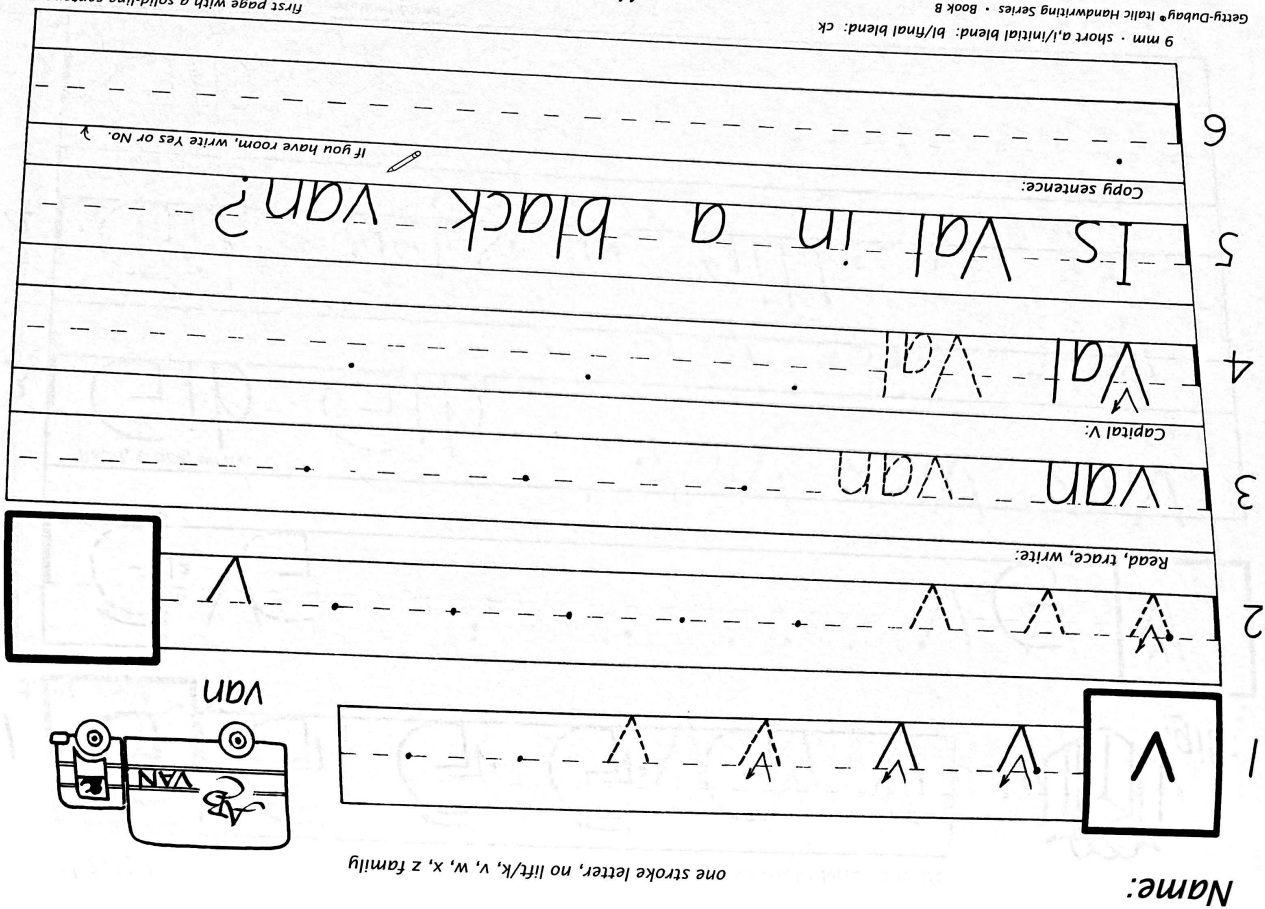 Name:
one stroke letter, no lift/k, v, w, x, z family
1 v v v v v
AB
VAN
van
2 v v v v
Read, trace, write:
3 van van
Capital V:
4 Val Val
5 Is Val in a black van?
Copy sentence:
If you have room, write Yes or No.
6
9 mm · short a,i/initial blend: bl/final blend: ck
Getty-Dubay® Italic Handwriting Series · Book B
first page with a solid-line